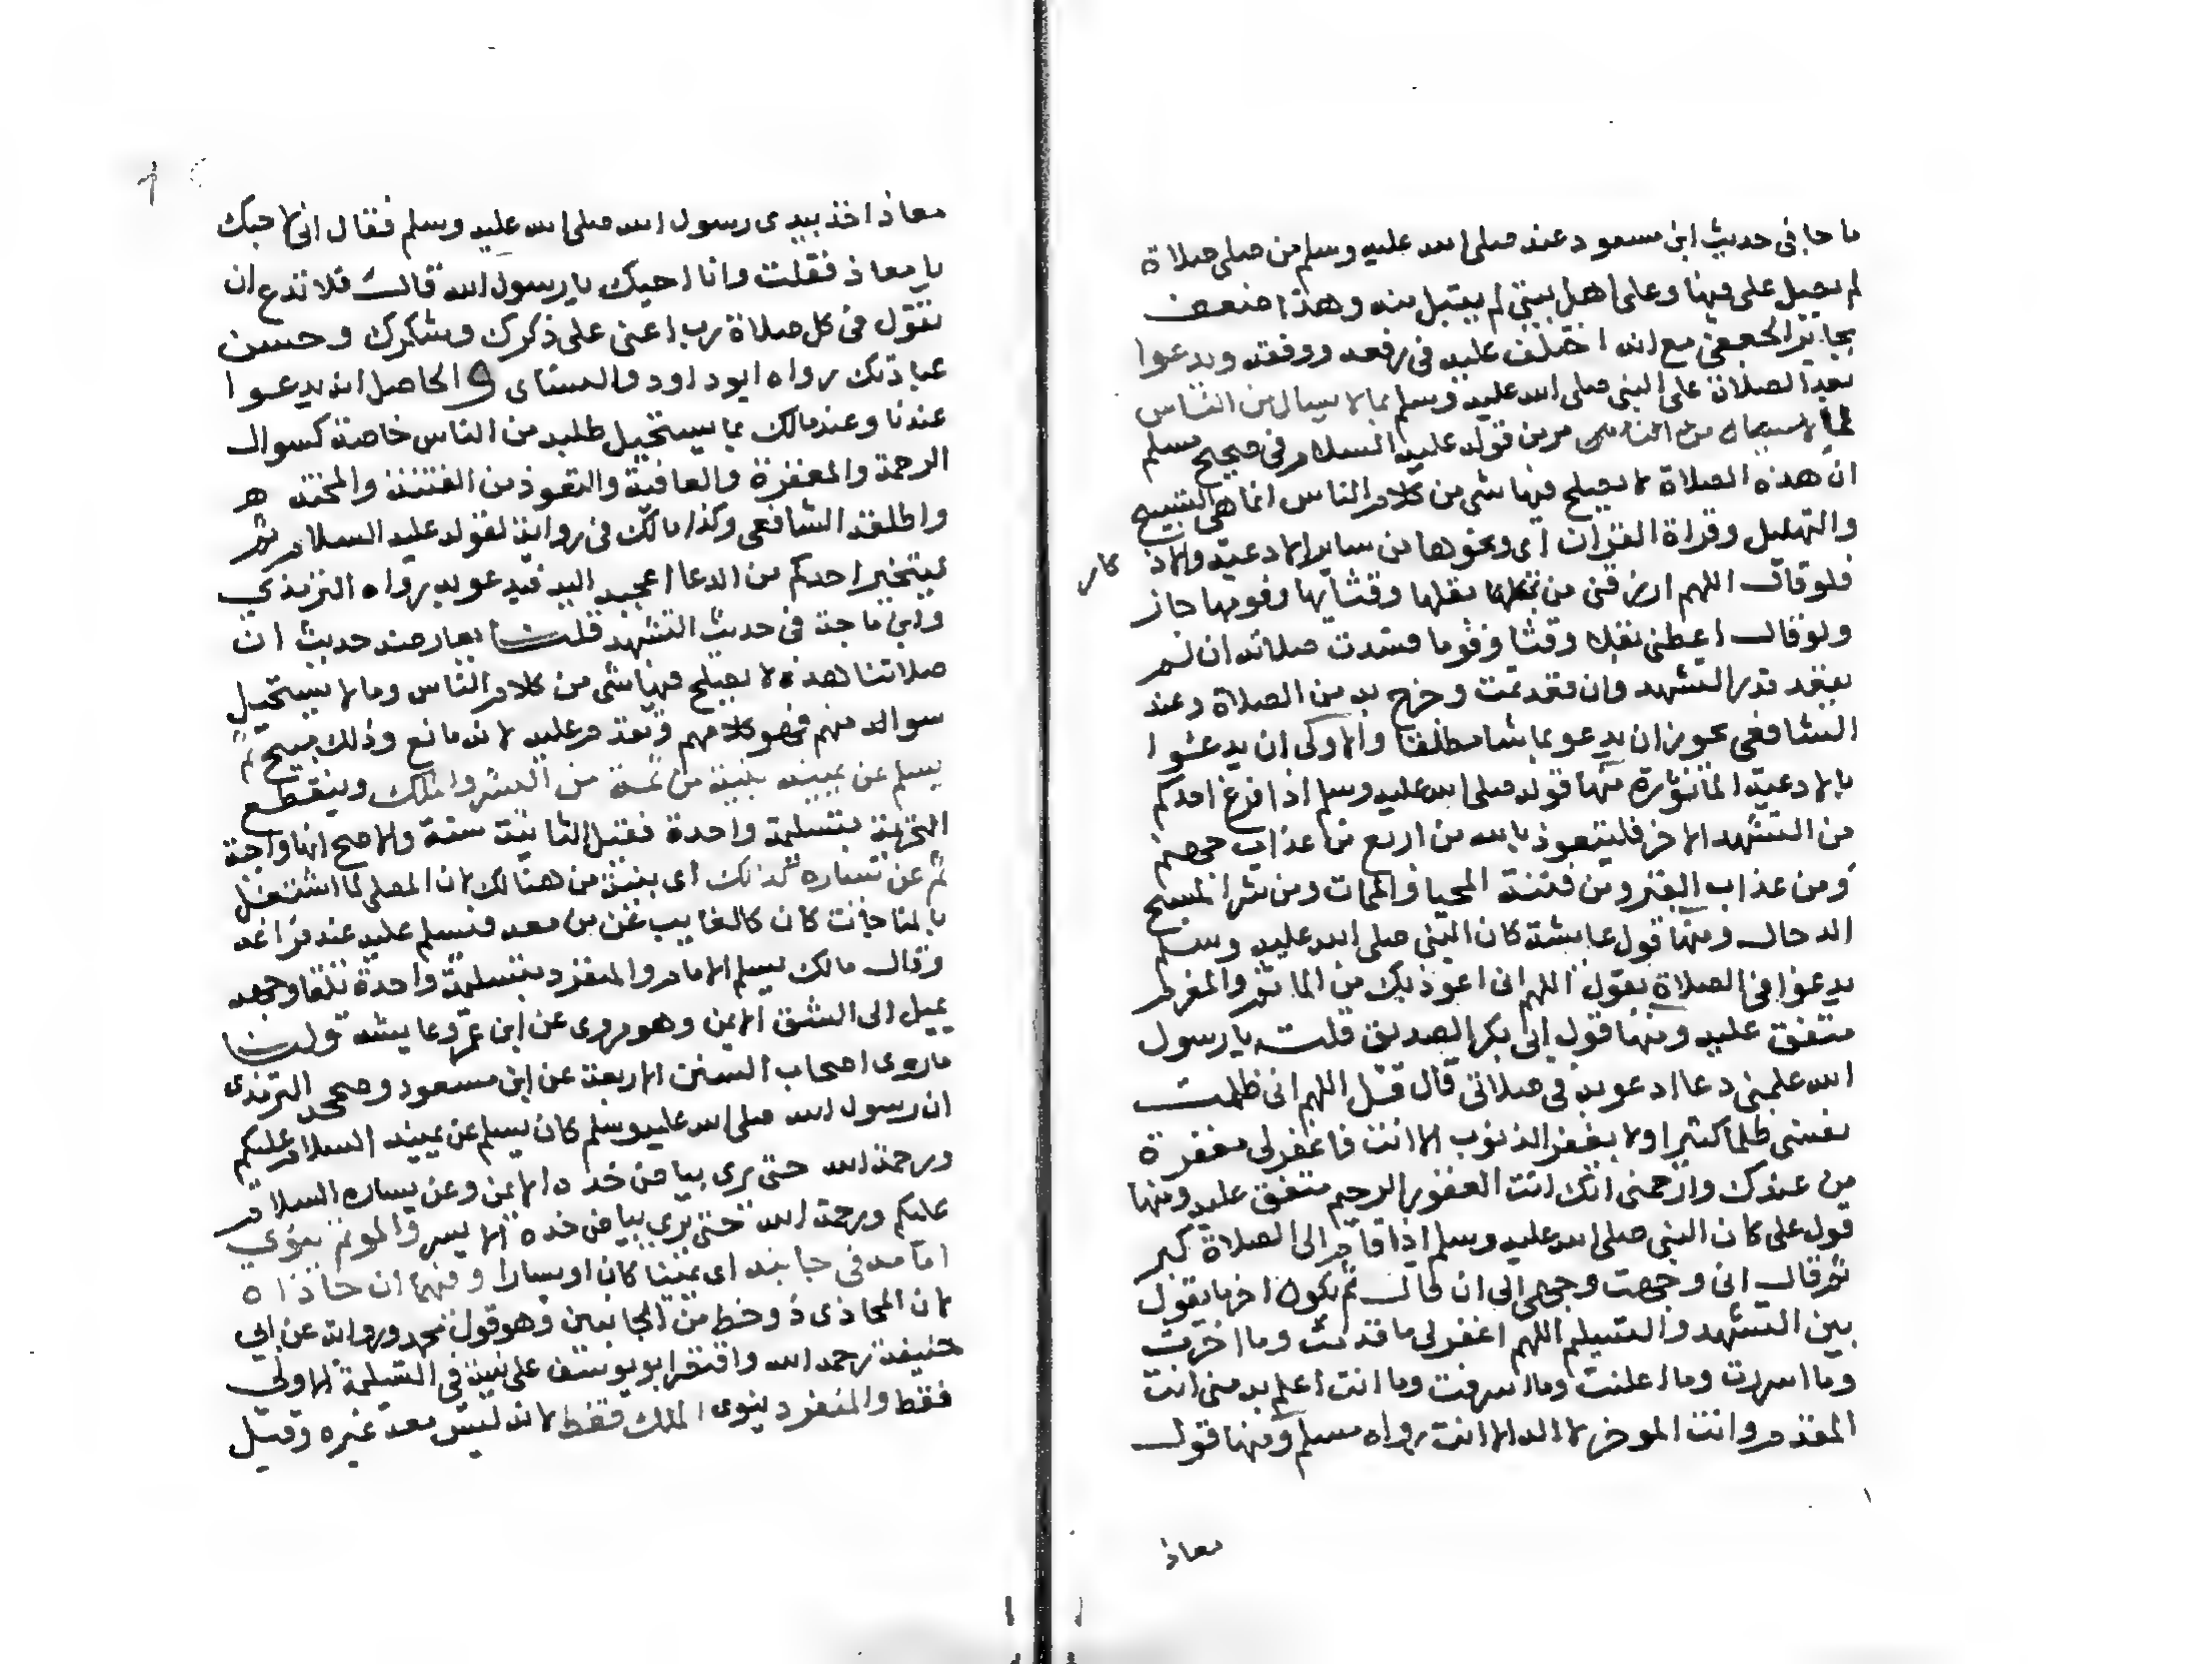 ما جا في حديث ابن مسعود عنه صلى الله عليه وسلم من صلى صلاة
لم يصل علي فيها وعلى اهل بيتي لم يقبل منه وهذا ضعف
بجابر الجعفي مع انه اختلف عليه في رفعه ووقفه ويدعوا
بعد الصلاة على النبي صلى الله عليه وسلم بما لا يسال من الناس
لما من الناس مر من قوله عليه السلام في صحيح مسلم
ان هذه الصلاة لا يصلح فيها شي من كلام الناس انما هي التسبيح
والتهليل وقراة القران اي ونحوها من ساير الادعية والاذ كار
فلو قال اللهم ارزقني من بقلها وقثايها وفومها جاز
ولو قال اعطني بقلا وقثا وفوما فسدت صلاته ان لم
يقعد قدر التشهد وان قعد تمت وخرج به من الصلاة وعند
الشافعي يجوز ان يدعو بما شا مطلقا والاولى ان يدعوا
بالادعية الماثورة منها قوله صلى الله عليه وسلم اذا فرغ احدكم
من التشهد الاخر فليتعوذ بالله من اربع من عذاب جهنم
ومن عذاب القبر ومن فتنة المحيا والممات ومن شر المسيح
الدجال ومنها قول عايشة كان النبي صلى الله عليه وسلم
يدعوا في الصلاة يقول اللهم اني اعوذ بك من الماثم والمغرم
متفق عليه ومنها قول ابي بكر الصديق قلت يا رسول
الله علمني دعا ادعو به في صلاتي قال قل اللهم اني ظلمت
نفسي ظلما كثيرا ولا يغفر الذنوب الا انت فاغفر لي مغفرة
من عندك وارحمني انك انت الغفور الرحيم متفق عليه ومنها
قول علي كان النبي صلى الله عليه وسلم اذا قام الى الصلاة كبر
ثم قال اني وجهت وجهي الى ان قال ثم يكون اخر ما يقول
بين التشهد والتسليم اللهم اغفر لي ما قدمت وما اخرت
وما اسررت وما اعلنت وما اسرفت وما انت اعلم به مني انت
المقدم وانت الموخر لا اله الا انت رواه مسلم ومنها قول
معاذ
معاذ اخذ بيدي رسول الله صلى الله عليه وسلم فقال اني لاحبك
يا معاذ فقلت وانا احبك يا رسول الله قال فلا تدع ان
تقول في كل صلاة رب اعني على ذكرك وشكرك وحسن
عبادتك رواه ابو داود والنساي والحاصل انه يدعوا
عندنا وعند مالك بما يستحيل طلبه من الناس خاصة كسوال
الرحمة والمغفرة والعافية والتعوذ من الفتنة والمحنة
واطلقه الشافعي وكذا مالك في رواية لقوله عليه السلام ثم
ليتخير احدكم من الدعا اعجبه اليه فيدعو به رواه الترمذي
وابن ماجة في حديث التشهد قلت يعارضه حديث ان
صلاتنا هذه لا يصلح فيها شي من كلام الناس وما لا يستحيل
سواله منهم فهو كلامهم وتقدم عليه لانه مانع وذلك مبيح ثم
يسلم عن يمينه بنية من ثمة من البشر والملك وينقطع
التحريمة بتسليمة واحدة فقيل الثانية سنة والاصح انها واجبة
ثم عن يساره كذلك اي بنية من هنالك لان المصلي لما اشتغل
بالمناجات كان كالغايب عمن معه فيسلم عليه عند فراغه
وقال مالك يسلم الامام والمنفرد بتسليمة واحدة تلقا وجهه
يميل الى الشق الايمن وهو مروي عن ابن عمر وعايشة ولنا
ما روى اصحاب السنن الاربعة عن ابن مسعود وصححه الترمذي
ان رسول الله صلى الله عليه وسلم كان يسلم عن يمينه السلام عليكم
ورحمة الله حتى يرى بياض خده الايمن وعن يساره السلام
عليكم ورحمة الله حتى يرى بياض خده الايسر والموتم ينوي
امامه في جانبه اي يمينا كان او يسارا وفيهما ان حاذاه
لان المحاذي ذو حظ من الجانبين وهو قول محمد ورواية عن ابي
حنيفة رحمه الله واقتصر ابو يوسف على نيته في التسليمة الاولى
فقط والمنفرد ينوي الملك فقط لانه ليس معه غيره وقيل